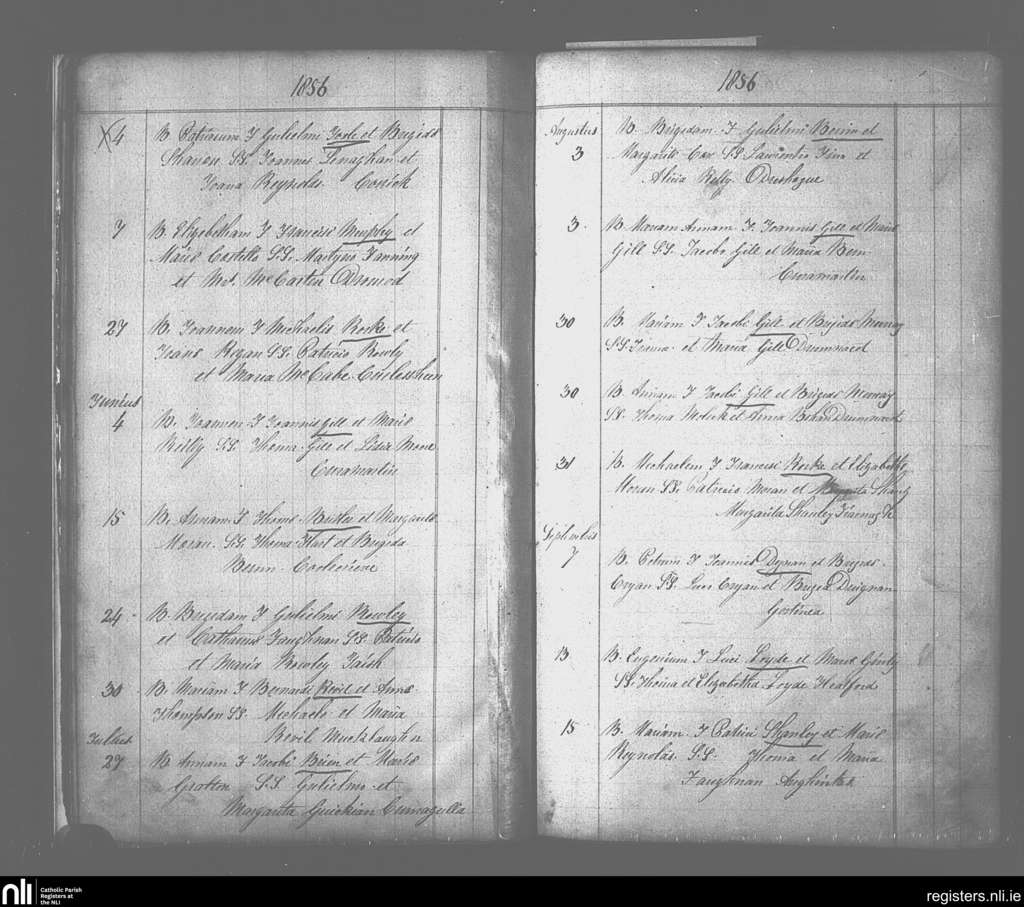 1856
4 B. Patricium F Gulielmi Foxle et Brigida
Shanon SS. Joannes Lenaghan et
Joana Reynolds
7 B. Elizabetham F Francisci Murphy et
Mariæ Costello S.S. Martyno Fanning
et Mt. McCarten Dromod
27 B. Joannem F Michaelis Rorke et
Joana Regan SS. Patricio Rowly
et Maria McCabe
Junius
4 B. Joannem F Joannis Gill et Mariæ
Rielly S.S. Thoma Gill et
Curamartin
15 B. Annam F Thoma Butler et Margarita
Moran S.S. Thoma Hart et Brigida
Beirn
24 B. Brigidam F Gulielmi Rowley
et Catharina Faughnan S.S. Patricio
et Maria Rowley
30 B. Mariam F Bernardi Revil et Anna
Thompson SS. Michaele et Maria
Revil
Julius
27 B. Annam F Jacobi Brien et Mariæ
Gratton S.S. Gulielmo et
Margarita Guickian
1856
Augustus B. Brigidam F Gulielmi Beirin et
3 Margarita Cox S.S. Laurentio et
Alicia Kelly
3 B. Mariam Annam F Joannis Gill et Mariæ
Gill S.S. Jacobo Gill et Maria Beirn
Curamartin
30 B. Mariam F Jacobi Gill et Brigida Murray
S.S. et Maria Gill Drumnacet
30 B. Annam F Jacobi Gill et Brigida Murray
SS. Thoma et Anna Drumnacet
31 B. Michaelem F Francisi Rorke et Elizabetha
Moran SS. Patricio Moran et
Margarita Shanley
Septembris
7 B. Petrum F Joannis Dignan et Brigida
Cryan SS. Luca Cryan et Brigida Duignan
Gortinea
13 B. Eugenium F Luci Loyde et Mariæ Ginty
SS. Thoma et Elizabetha Loyde
15 B. Mariam F Patricii Shanley et Mariæ
Reynolds S.S. Thoma et Maria
Faughnan
nli
Catholic Parish
Registers at
the NLI
registers.nli.ie